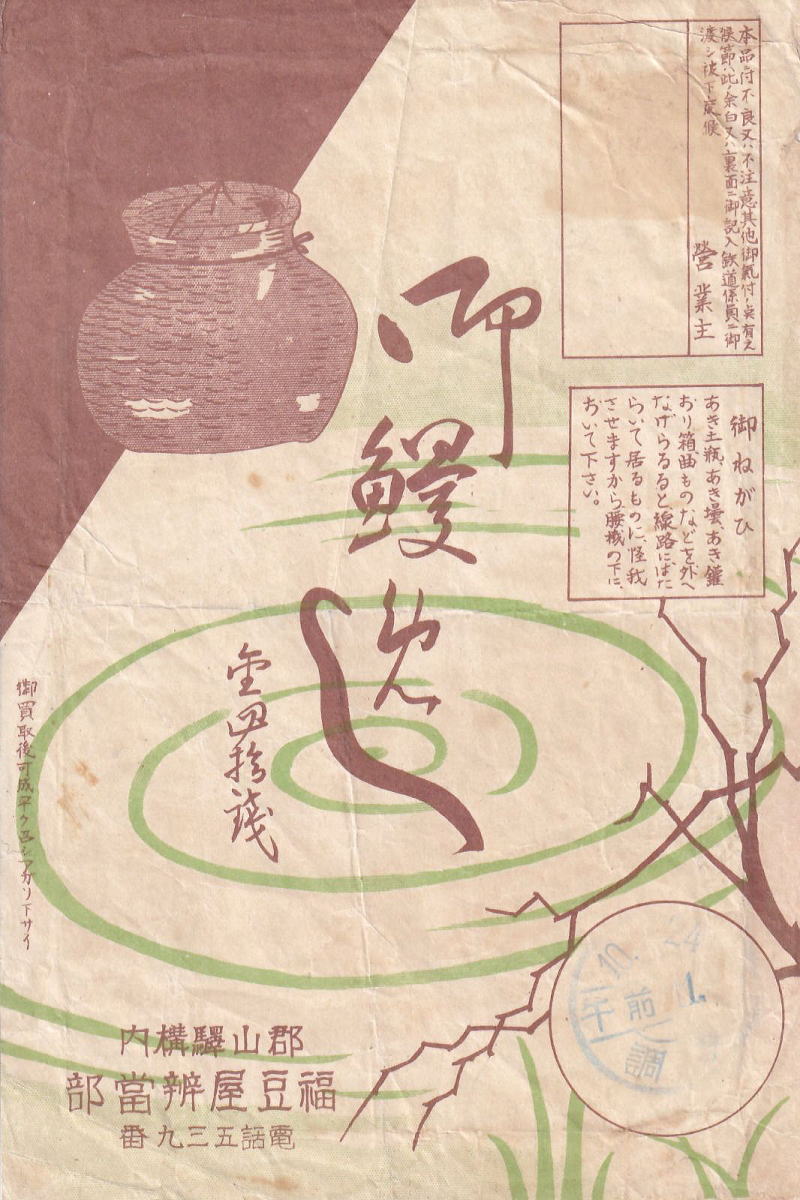 本品ニ付不良又ハ不注意其他御氣付ノ点有之
候節ハ此ノ余白又ハ裏面ニ御記入鉄道係員ニ御
渡シ被下度候
營業主
御ねがひ
あき土瓶、あき壜、あき鑵
おり箱、曲ものなどを外へ
なげらるると線路にはた
らいて居るものに、怪我
させますから腰掛の下に、
おいて下さい。
御鰻めし
金四拾錢
御買取後可成早ク召シアガリ下サイ
郡山驛構内
福豆屋辨當部
電話五三九番
10. 24
午前
調